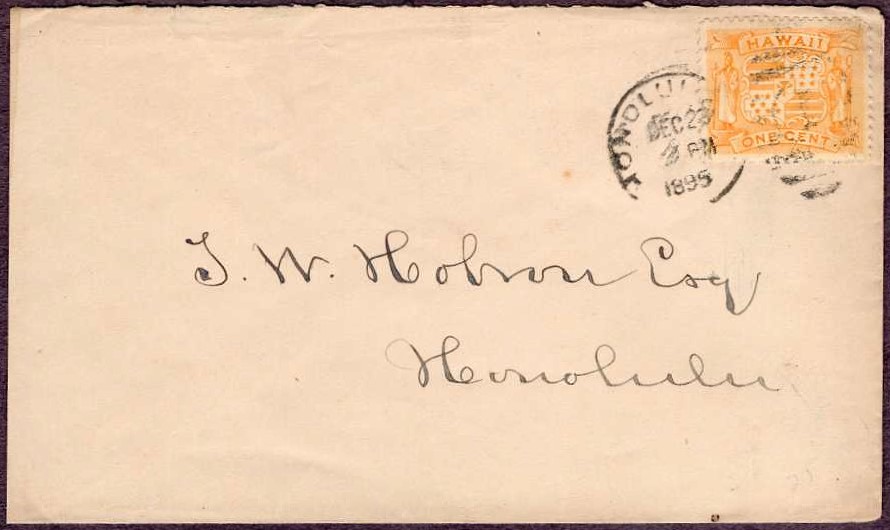 HAWAII
ONE CENT
HONOLULU
DEC 23
2 PM
1895
T. W. Hobron Esq
Honolulu